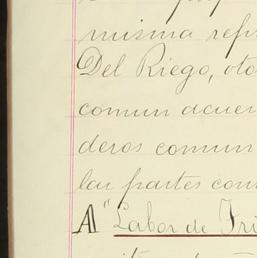 misma refr
Del Riego, oto
comun acuer
deros comun
las partes con
A "Labor de Tri